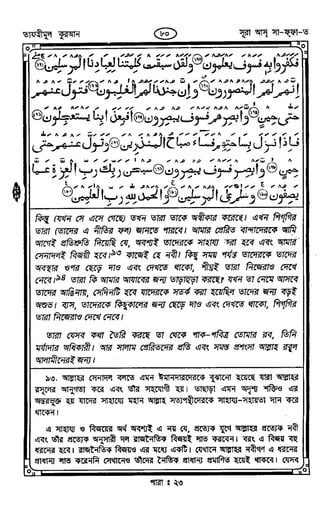 তাফহীমুল কুরআন ৮০ সূরা আস্ সা-ফ্ফা-ত
فَكَفَرُوا بِهِ فَسَوْفَ يَعْلَمُونَ وَلَقَدْ سَبَقَتْ كَلِمَتُنَا لِعِبَادِنَا الْمُرْسَلِينَ
إِنَّهُمْ لَهُمُ الْمَنْصُورُونَ وَإِنَّ جُنْدَنَا لَهُمُ الْغَالِبُونَ فَتَوَلَّ عَنْهُمْ
حَتَّى حِينٍ وَأَبْصِرْهُمْ فَسَوْفَ يُبْصِرُونَ أَفَبِعَذَابِنَا يَسْتَعْجِلُونَ
فَإِذَا نَزَلَ بِسَاحَتِهِمْ فَسَاءَ صَبَاحُ الْمُنْذَرِينَ وَتَوَلَّ عَنْهُمْ حَتَّى
حِينٍ وَأَبْصِرْ فَسَوْفَ يُبْصِرُونَ سُبْحَانَ رَبِّكَ رَبِّ الْعِزَّةِ عَمَّا
يَصِفُونَ وَسَلَامٌ عَلَى الْمُرْسَلِينَ وَالْحَمْدُ لِلَّهِ رَبِّ الْعَالَمِينَ
কিন্তু (যখন সে এসে গেছে) তখন তারা তাকে অস্বীকার করেছে। এখন শিগ্‌গির
তারা (তাদের এ নীতির ফল) জানতে পারবে। আমার প্রেরিত বান্দাদেরকে আমি
আগেই প্রতিশ্রুতি দিয়েছি যে, অবশ্যই তাদেরকে সাহায্য করা হবে এবং আমার
সেনাদলই বিজয়ী হবে।৯৩ কাজেই হে নবী! কিছু সময় পর্যন্ত তাদেরকে তাদের
অবস্থার ওপর ছেড়ে দাও এবং দেখতে থাকো, শীঘ্রই তারা নিজেরাও দেখে
নেবে।৯৪ তারা কি আমার আযাবের জন্য তাড়াহুড়া করছে? যখন তা নেমে আসবে
তাদের আঙিনায়, সেদিনটি হবে যাদেরকে সতর্ক করা হয়েছিল তাদের জন্য বড়ই
অশুভ। ব্যস, তাদেরকে কিছুকালের জন্য ছেড়ে দাও এবং দেখতে থাকো, শিগ্‌গির
তারা নিজেরাও দেখে নেবে।
তারা যেসব কথা তৈরি করছে তা থেকে পাক-পবিত্র তোমার রব, তিনি
মর্যাদার অধিকারী। আর সালাম প্রেরিতদের প্রতি এবং সমস্ত প্রশংসা আল্লাহ রব্বুল
আলামীনেরই জন্য।
৯৩. আল্লাহর সেনাদল বলতে এমন ঈমানদারদেরকে বুঝানো হয়েছে যারা আল্লাহর
রসূলের আনুগত্য করে এবং তাঁর সহযোগী হয়। তাছাড়া এমন অদৃশ্য শক্তিও এর
অন্তরভুক্ত হয় যাদের সাহায্যে মহান আল্লাহ সত্যপন্থীদেরকে সাহায্য-সহায়তা দান করে
থাকেন।
এ সাহায্য ও বিজয়ের অর্থ অবশ্যই এ নয় যে, প্রত্যেক যুগে আল্লাহর প্রত্যেক নবী
এবং তাঁর প্রত্যেক অনুসারী দল রাজনৈতিক বিজয়ই লাভ করবেন। বরং এ বিজয় বহু
ধরনের হবে। রাজনৈতিক বিজয়ও এর মধ্যে একটি। যেখানে আল্লাহর নবীগণ এ ধরনের
প্রাধান্য লাভ করেননি সেখানেও তাঁদের নৈতিক প্রাধান্য প্রমাণিত হয়েই থাকবে। যেসব
পারা : ২৩